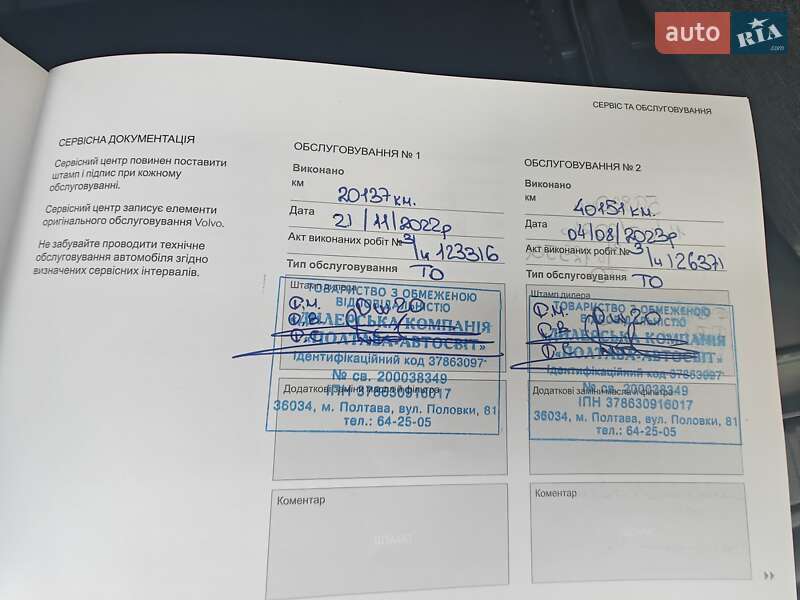 auto RIA.com
СЕРВІС ТА ОБСЛУГОВУВАННЯ
СЕРВІСНА ДОКУМЕНТАЦІЯ
Сервісний центр повинен поставити
штамп і підпис при кожному
обслуговуванні.
Сервісний центр записує елементи
оригінального обслуговування Volvo.
Не забувайте проводити технічне
обслуговування автомобіля згідно
визначених сервісних інтервалів.
ОБСЛУГОВУВАННЯ № 1
Виконано
км
20137 км.
Дата
21/11/2022р
Акт виконаних робіт № З/Ч 123316
Тип обслуговування ТО
Штамп дилера
ТОВАРИСТВО З ОБМЕЖЕНОЮ
ВІДПОВІДАЛЬНІСТЮ
ДИЛЕРСЬКА КОМПАНІЯ
«ПОЛТАВА-АВТОСВІТ»
Ідентифікаційний код 37863097
№ св. 200038349
Додаткові заміни масла й фільтра
ІПН 378630916017
36034, м. Полтава, вул. Половки, 81
тел.: 64-25-05
Коментар
ОБСЛУГОВУВАННЯ № 2
Виконано
км
40151 км.
Дата
04/08/2023р
Акт виконаних робіт № З/Ч 126371
Тип обслуговування ТО
Штамп дилера
ТОВАРИСТВО З ОБМЕЖЕНОЮ
ВІДПОВІДАЛЬНІСТЮ
ДИЛЕРСЬКА КОМПАНІЯ
«ПОЛТАВА-АВТОСВІТ»
Ідентифікаційний код 37863097
№ св. 200038349
Додаткові заміни масла й фільтра
ІПН 378630916017
36034, м. Полтава, вул. Половки, 81
тел.: 64-25-05
Коментар